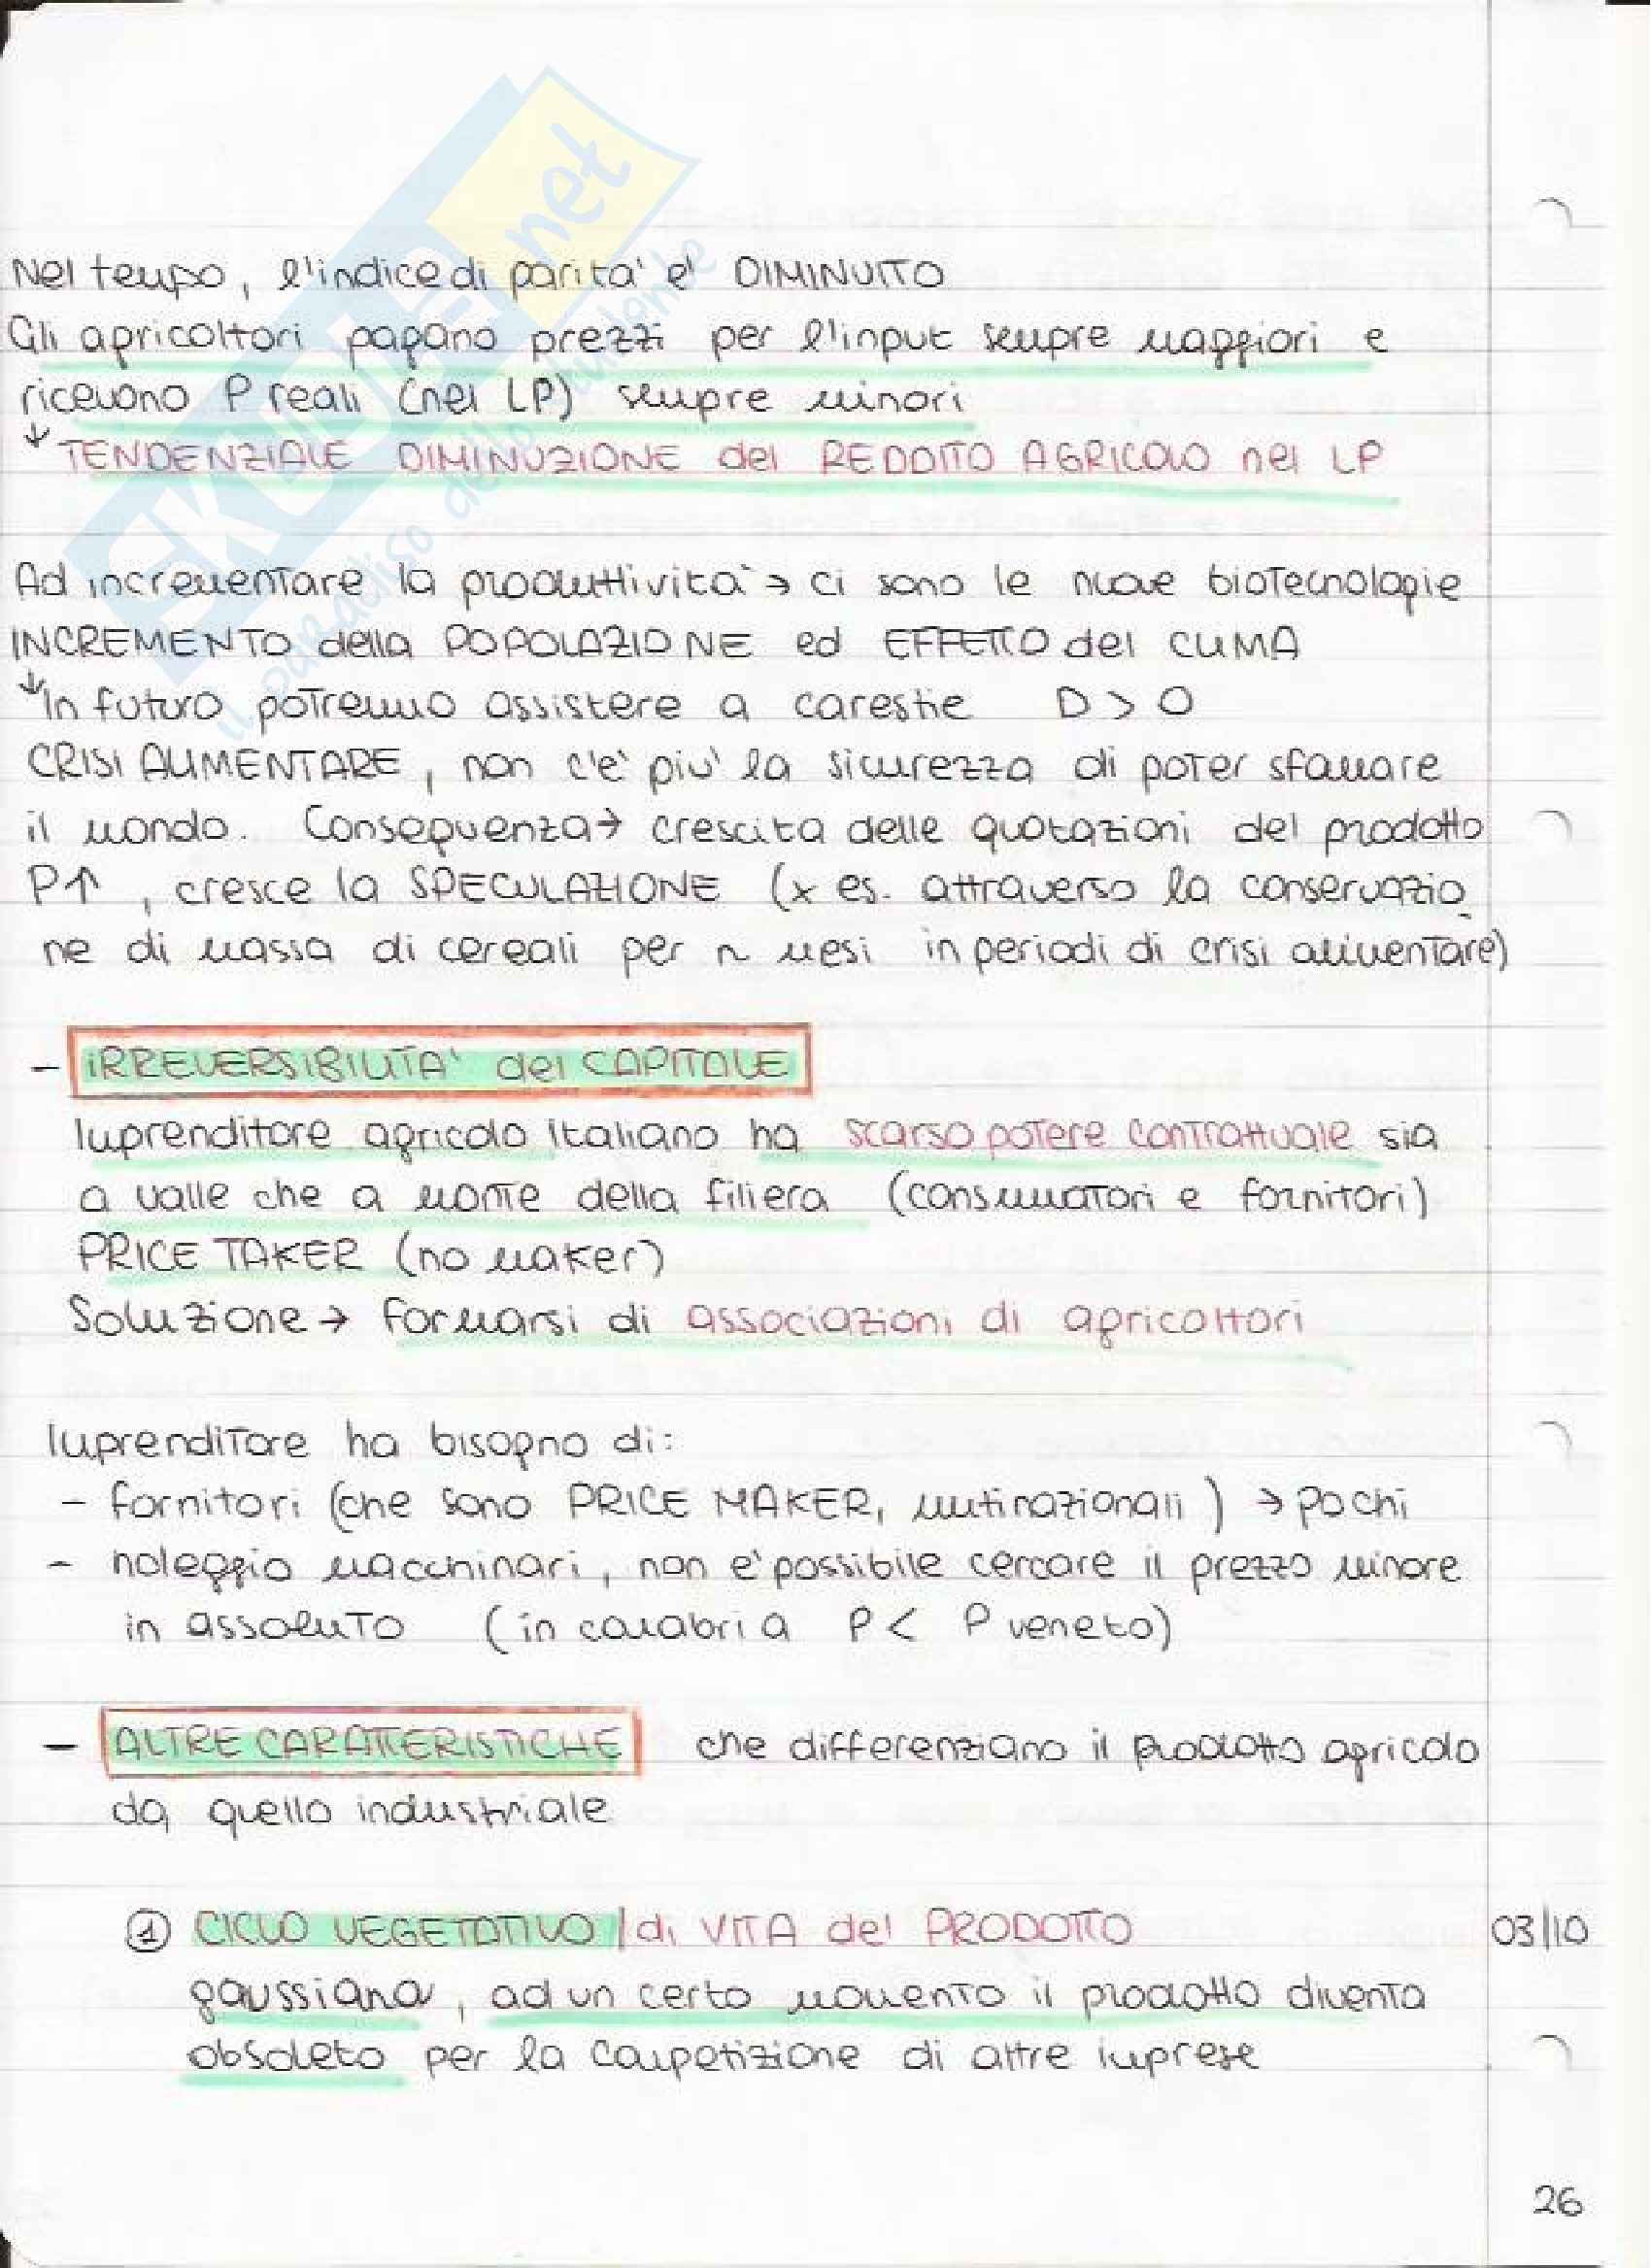 SKUOLA.net
il paradiso dello studente
Nel tempo, l'indice di parita' e' DIMINUITO
Gli agricoltori pagano prezzi per l'input sempre maggiori e
ricevono P reali (nel LP) sempre minori
↓ TENDENZIALE DIMINUZIONE del REDDITO AGRICOLO nel LP
Ad incrementare la produttivita' → ci sono le nuove biotecnologie
INCREMENTO della POPOLAZIONE ed EFFETTO del CLIMA
↓ In futuro potremmo assistere a carestie D > O
CRISI ALIMENTARE, non c'e' piu' la sicurezza di poter sfamare
il mondo. Conseguenza → crescita delle quotazioni del prodotto
P↑, cresce la SPECULAZIONE (x es. attraverso la conservazio_
ne di massa di cereali per n mesi in periodi di crisi alimentare)
- IRREVERSIBILITA' del CAPITALE
Imprenditore agricolo italiano ha scarso potere contrattuale sia
a valle che a monte della filiera (consumatori e fornitori)
PRICE TAKER (no maker)
Soluzione → formarsi di associazioni di agricoltori
Imprenditore ha bisogno di:
- fornitori (che sono PRICE MAKER, multinazionali) → pochi
- noleggio macchinari, non e' possibile cercare il prezzo minore
in assoluto (in calabria P < P veneto)
- ALTRE CARATTERISTICHE che differenziano il prodotto agricolo
da quello industriale
① CICLO VEGETATIVO / di VITA del PRODOTTO 03/10
gaussiana, ad un certo momento il prodotto diventa
obsoleto per la competizione di altre imprese
26